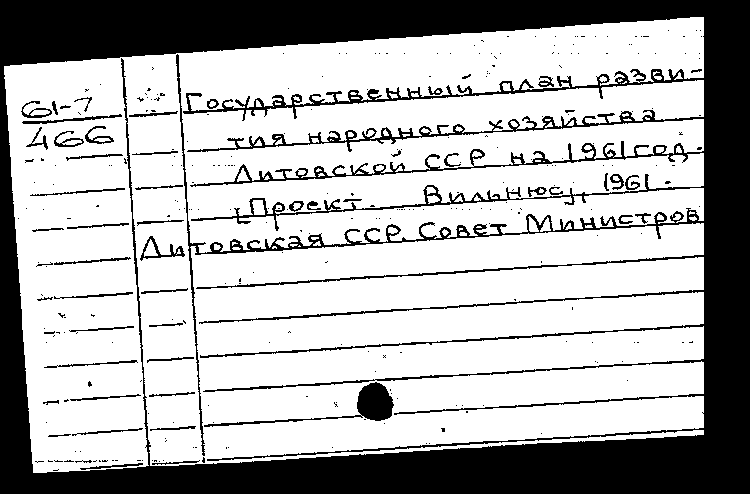 61-7
466
Государственный план разви-
тия народного хозяйства
Литовской ССР на 1961 год.
[Проект. Вильнюс], 1961.
Литовская ССР. Совет Министров